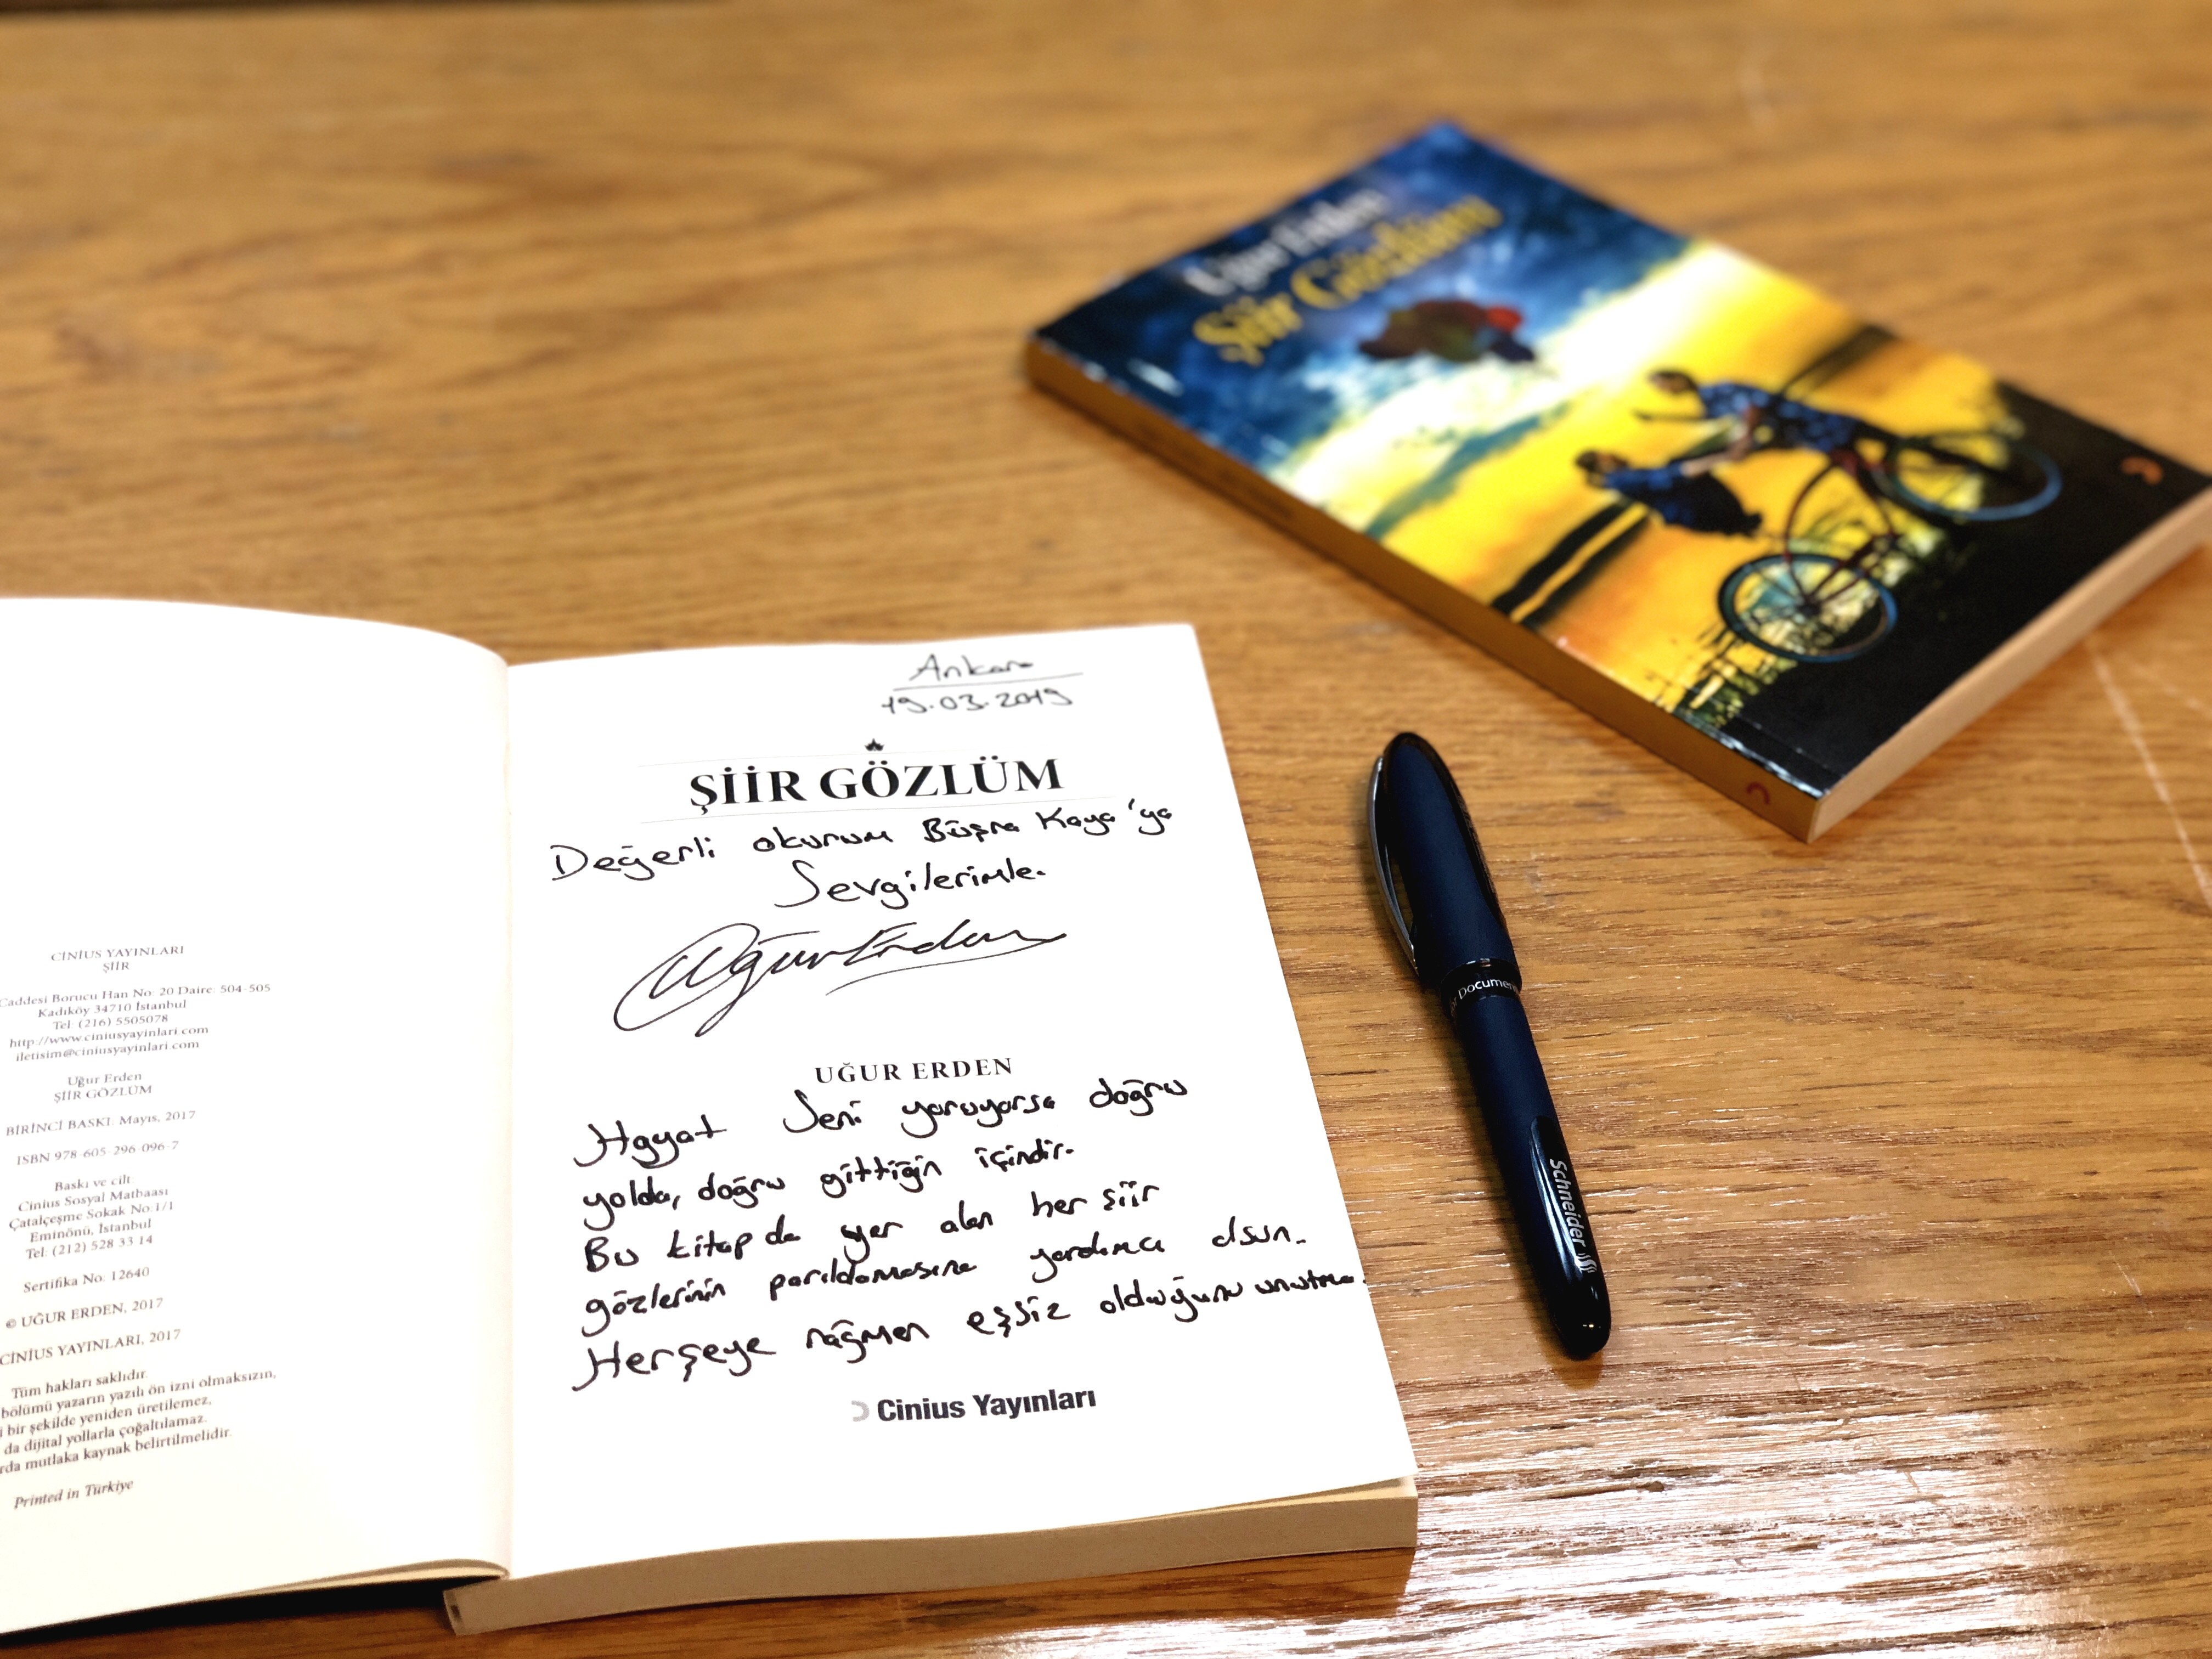 CİNİUS YAYINLARI
ŞİİR
Caddesi Borucu Han No: 20 Daire: 504-505
Kadıköy 34710 İstanbul
Tel: (216) 5505078
http://www.ciniusyayinlari.com
iletisim@ciniusyayinlari.com
Uğur Erden
ŞİİR GÖZLÜM
BİRİNCİ BASKI: Mayıs, 2017
ISBN 978-605-296-096-7
Baskı ve cilt
Cinius Sosyal Matbaası
Çatalçeşme Sokak No:1/1
Eminönü, İstanbul
Tel: (212) 528 33 14
Sertifika No: 12640
© UĞUR ERDEN, 2017
CİNİUS YAYINLARI, 2017
Tüm hakları saklıdır.
bölümü yazarın yazılı ön izni olmaksızın,
bir şekilde yeniden üretilemez,
da dijital yollarla çoğaltılamaz.
mutlaka kaynak belirtilmelidir.
Printed in Türkiye
Ankara
19.03.2019
ŞİİR GÖZLÜM
Değerli okurum Büşra Kaya'ya
Sevgilerimle.
Uğur Erden
UĞUR ERDEN
Hayat Seni yoruyorsa doğru
yolda, doğru gittiğin içindir.
Bu kitap da yer alan her şiir
gözlerinin parıldamasına yardımcı olsun.
Herşeye rağmen eşsiz olduğunu unutma.
Cinius Yayınları
Uğur Erden
Şiir Gözlüm
Schneider